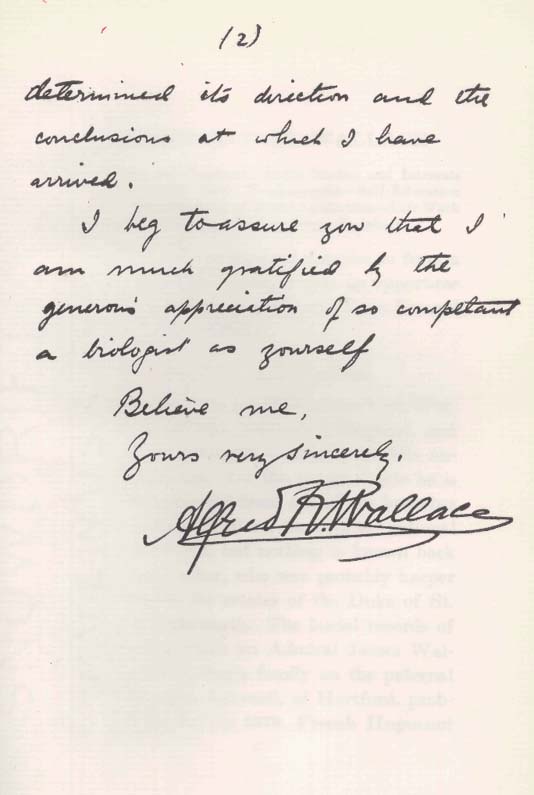 (2)
determined its direction and the
conclusions at which I have
arrived.
I beg to assure you that I
am much gratified by the
generous appreciation of so competant
a biologist as yourself
Believe me,
Yours very sincerely,
Alfred R. Wallace